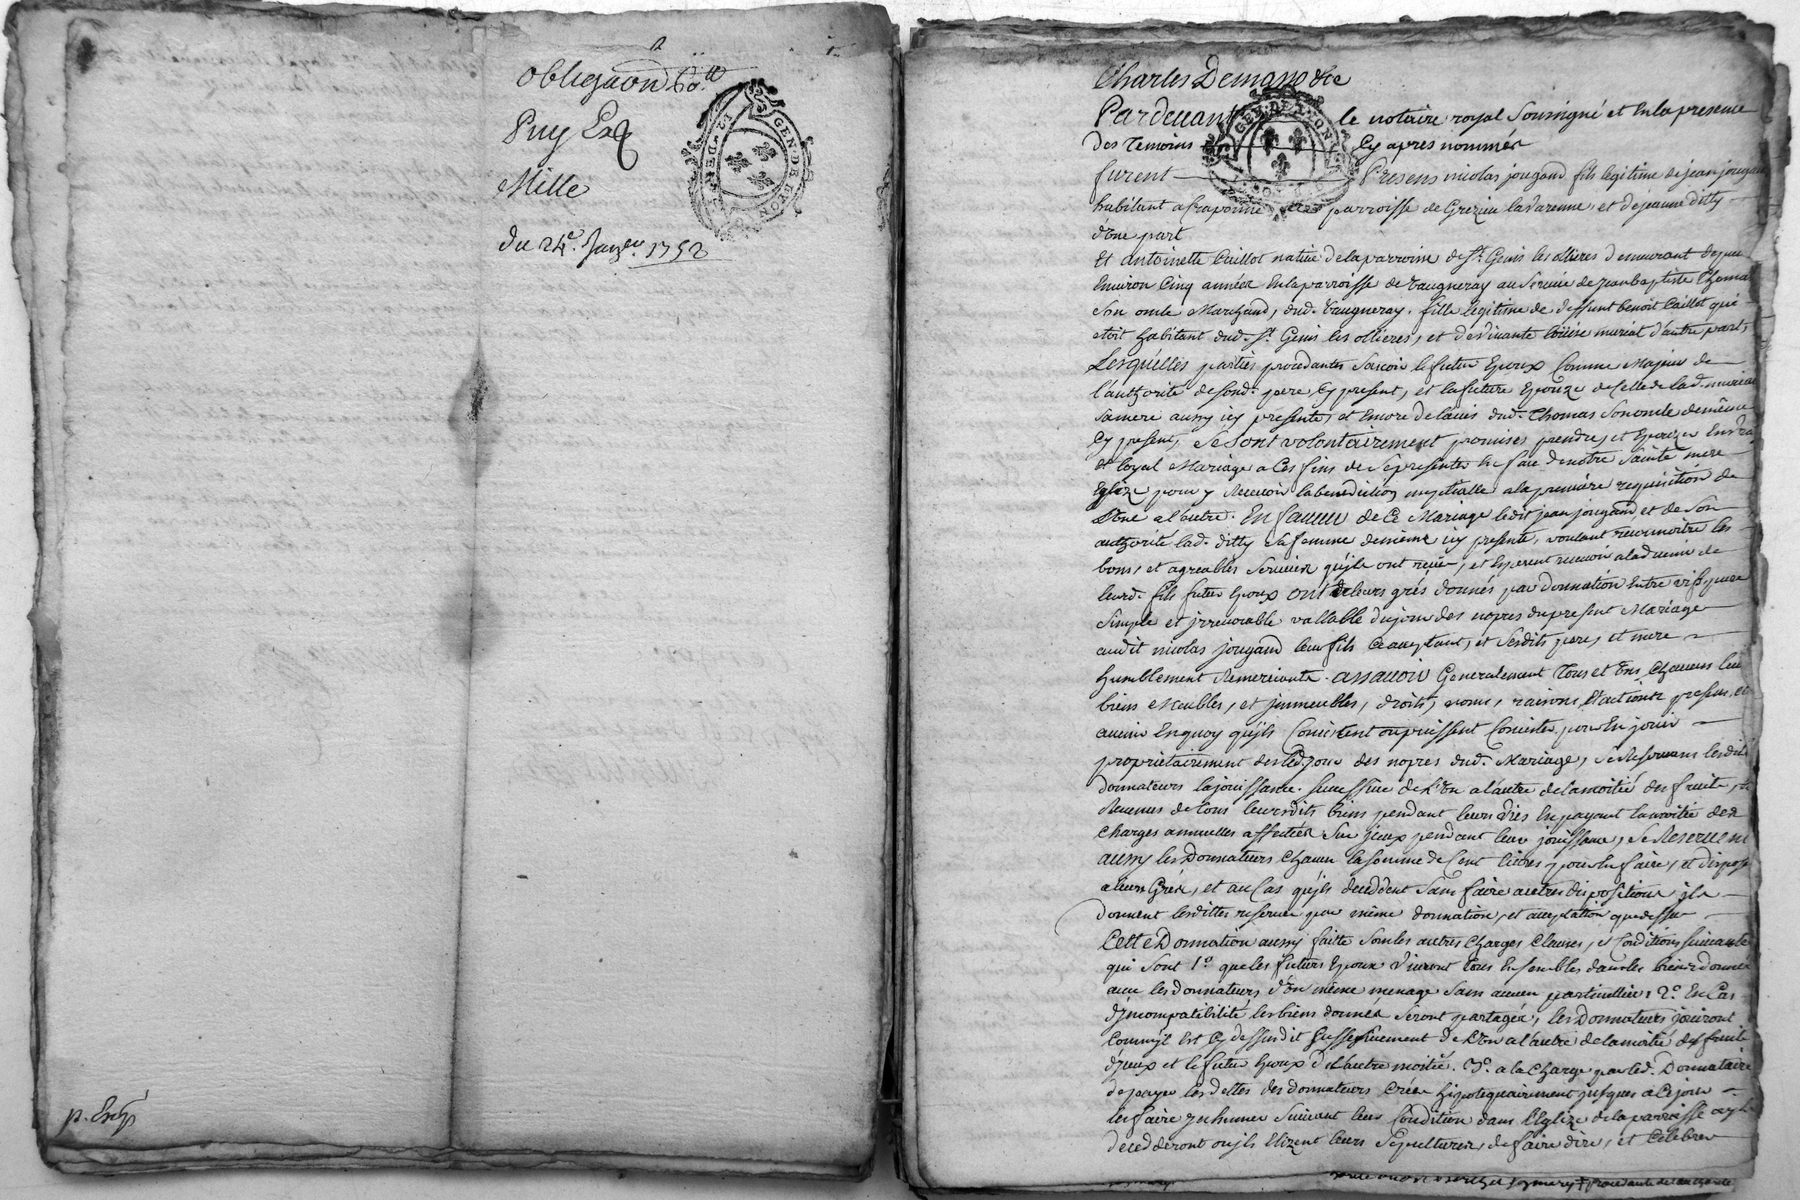 obligaon 60.tt
Puy Exp
Mille
du 24e. Janer. 1752
p. Exp
GEN. DE LYON
Charles Demans &ce
Pardeuant le notaire royal Soussigné et En la presence
Des Temoins Cy apres nommés
furent Presens nicolas jougand fils legitime de jean jougand
habitant a Craponne parroisse de Grezieu la varenne et de jeanne ditty
d'une part
Et antoinette Caillot native de la parroisse de St. Genis les ollieres demeurant depuis
Environ Cinq années En la parroisse de Vaugneray au Service de jean baptiste Thomas
Son oncle Marchand, dud. Vaugneray. fille legitime de deffunt benoit Caillot qui
etoit habitant dud. St. Genis les ollieres, et de vivante muriat d'autre part,
Lesquelles parties procedantes Savoir le futur Epoux Comme Majeur de
l'authorité de sond. pere Cy present, et la future Epouze de Celle de lad. muriat
Sa mere aussy icy presente, et Encore de l'avis dud. Thomas Son oncle de même
Cy present, Se Sont volontairement promises prendre, et Epouzer En vray
et loyal Mariage a Ces fins de Se presenter En face de notre Sainte mere
Eglize pour y Recevoir la benediction nuptialle a la premiere requisition de
L'une a l'autre. En faveur de Ce Mariage ledit jean jougand et de Son
authorité lad. ditty Sa femme de même icy presente, voulant reconnoitre les
bons, et agreables Services qu'ils ont reçus, et Esperent recevoir a l'advenir de
leurd. fils futur Epoux ont de leurs grés donnés par donnation Entre vifs pure
Simple et jrrevocable vallable du jour des nopces du present Mariage
audit nicolas jougand leur fils Ceacceptant, et Sesdits pere, et mere
humblement Remerciants. assavoir Generalement Tous et Uns Chacuns leurs
biens Meubles, et jmmeubles, droits, noms, raisons, Et actions presens, et
avenir En quoy qu'ils Consistent ou puissent Consister pour En jouir
proprietairement desled. jour des nopces dud. Mariage, Se Reservans lesdits
donnateurs la jouissance Successive de L'un a l'autre de la moitié des fruits, et
Revenus de tous leursdits biens pendant leurs vies En payant la moitié des
Charges annuelles affectées Sur jceux pendant leur jouissance, Se Reservent
aussy les Donnateurs Chacun la Somme de Cent livres pour En faire, et disposer
a leurs Grés, et au Cas qu'ils decedent Sans faire autres dispositions ils
donnent lesdittes reserves par même donnation, et acceptation que dessus
Cette Donnation aussy faitte Sous les autres Charges Clauses, et Conditions Suivantes
qui Sont 1o. que les futurs Epoux vivront tous Ensembles dans les biens donnés
avec les Donnateurs d'un même menage Sans aucun particulier: 2o. En Cas
d'jncompatibilité les biens donnés Seront partagés, les Donnateurs jouiront
Comm'jl est Cy dessus dit Successivement de L'un a l'autre de la moitié des fruits
d'jceux et le futur Epoux de L'autre moitié. 3o. a la Charge par led. Donnataire
de payer les dettes des donnateurs Créées hipotequairement jusques a Ce jour
les faire jnhumer Suivant leurs Condition dans l'Eglize de la parroisse ou jls
decedderont ou jls Elizent leurs Sepultures, de faire dire, et Celebrer